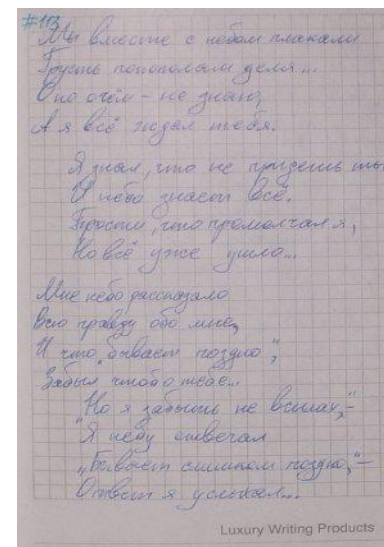 #113
Мы вместе с небом плакали
Грусть попополам деля...
Оно о чём - не знаю,
А я всё ждал тебя.
Я знал, что не придёшь ты
И небо знает всё.
Прости, что промолчал я,
Но всё уже ушло...
Мне небо рассказало
Всю правду обо мне,
И что "бывает поздно",
Забыл чтоб о тебе...
"Но я забыть не в силах,"-
Я небу отвечал
"Бывает слишком поздно,"-
Ответ я услыхал...
Luxury Writing Products